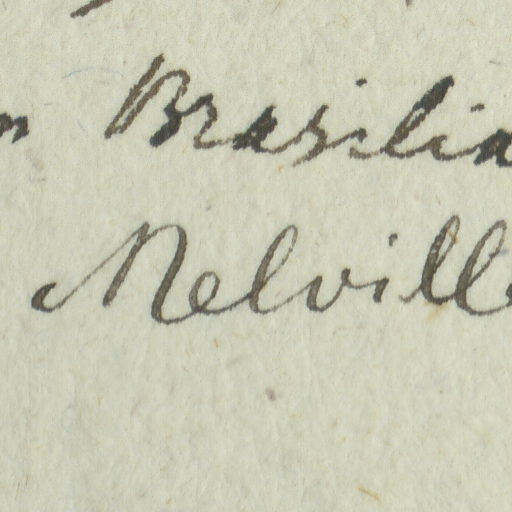 n Brasilia
Melville